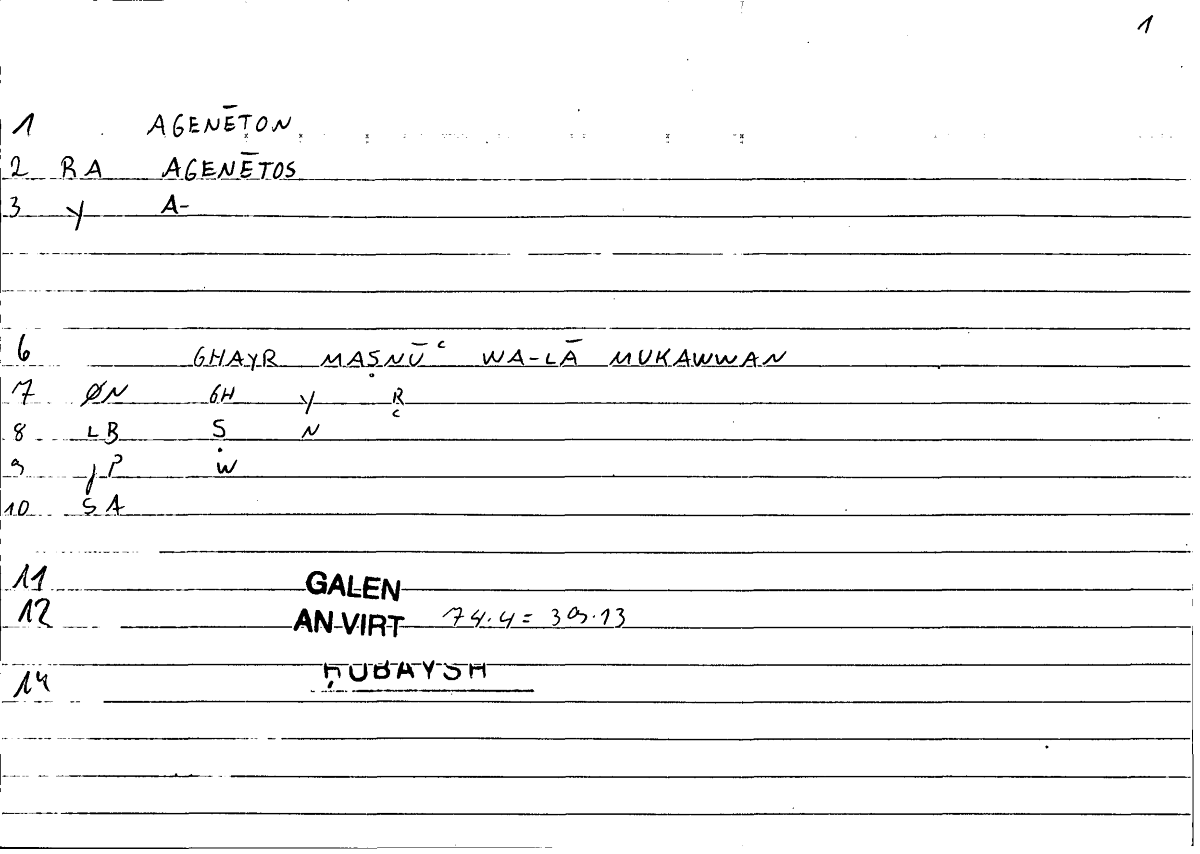 1
1 AGENĒTON
2 RA AGENĒTOS
3 Y A-
6 GHAYR MAṢNŪʿ WA-LĀ MUKAWWAN
7 ØN GH Y R
8 LB Ṣ N ʿ
9 JP W
10 SA
11 GALEN
12 AN VIRT 74.4 = 39.13
14 ḤUBAYSH